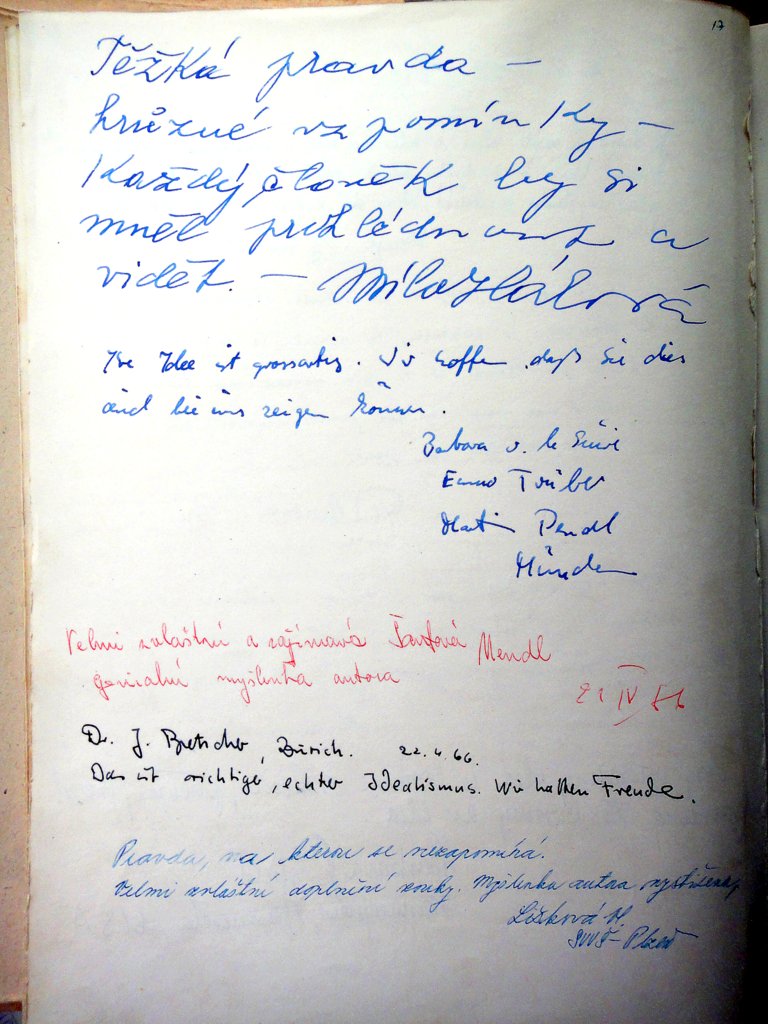 17
Těžká pravda –
hrůzné vzpomínky –
Každý člověk by si
měl prohlédnout a
vidět. –
Ihre Idee ist grossartig. Wir hoffen, daß Sie dies
auch bei uns zeigen können.
Barbara v.
Martin Pendl
München
Velmi zvláštní a zajímavá Mendl
geniální myšlenka autora
21 IV 66
Dr. J. Bretscher, Zürich. 22.4.66.
Das ist richtiger, echter Idealismus. Wir hatten Freude.
Pravda, na kterou se nezapomíná.
Velmi zvláštní doplnění zvuky. Myšlenka autora vystižená,
Lišková M.
SVVŠ – Plzeň